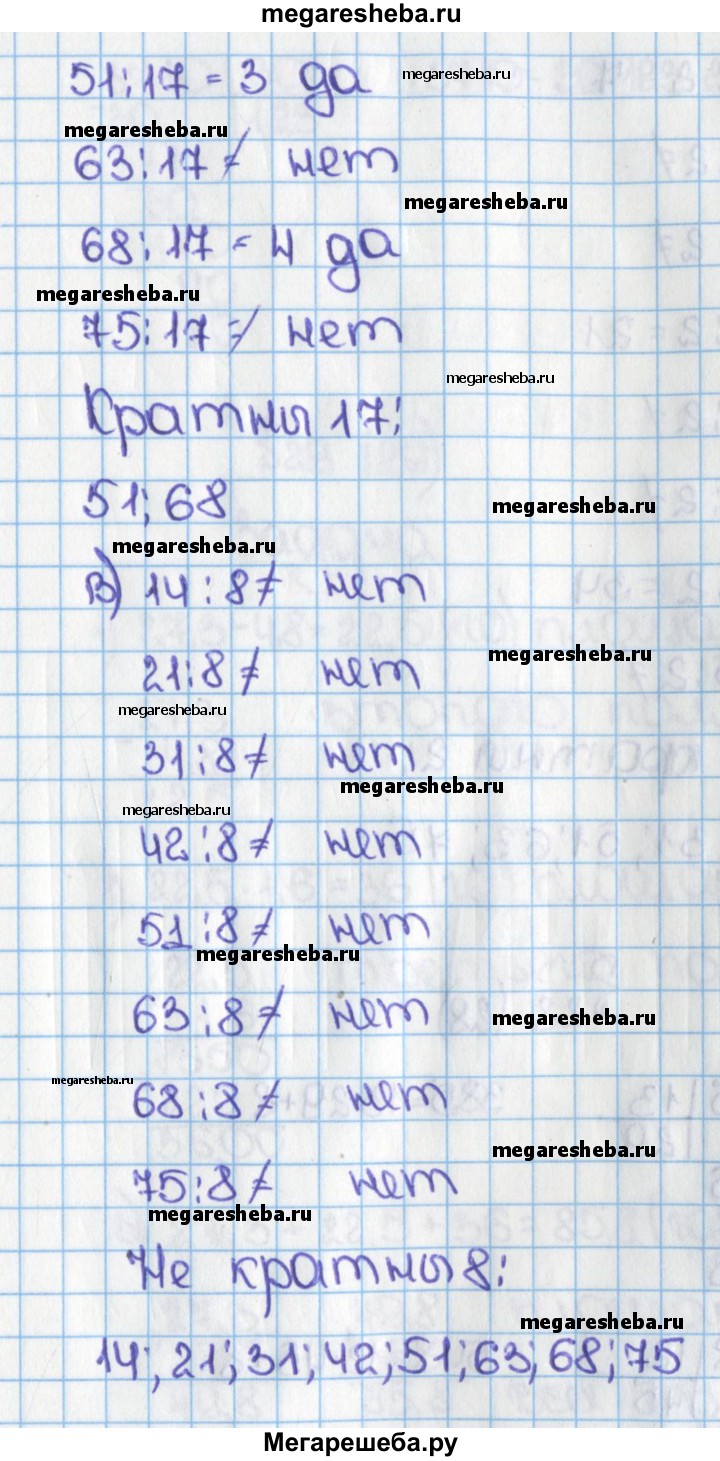 megaresheba.ru
51:17 = 3 да
megaresheba.ru
megaresheba.ru
63:17 ≠ нет
megaresheba.ru
68:17 = 4 да
megaresheba.ru
75:17 ≠ нет
megaresheba.ru
Кратны 17:
51; 68
megaresheba.ru
megaresheba.ru
в) 14:8 ≠ нет
megaresheba.ru
21:8 ≠ нет
megaresheba.ru
31:8 ≠ нет
megaresheba.ru
megaresheba.ru
42:8 ≠ нет
51:8 ≠ нет
megaresheba.ru
63:8 ≠ нет
megaresheba.ru
megaresheba.ru
68:8 ≠ нет
megaresheba.ru
75:8 ≠ нет
megaresheba.ru
Не кратны 8:
megaresheba.ru
14; 21; 31; 42; 51; 63; 68; 75
Мегарешеба.ру